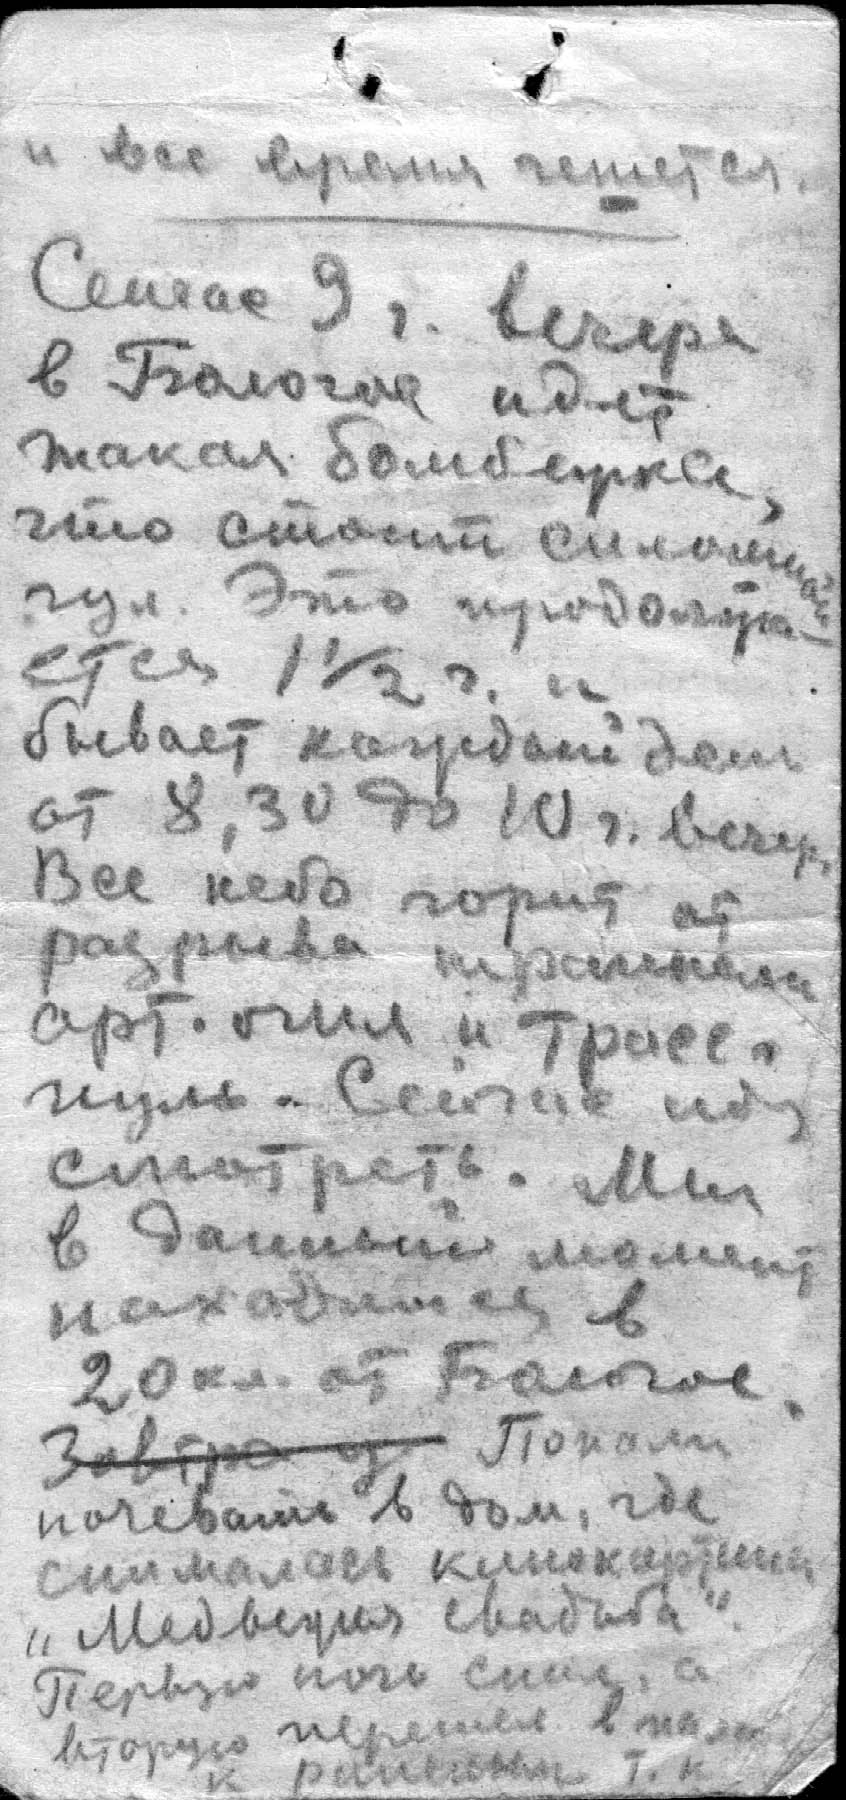 и все время чешется.
Сейчас 9 г. вечера
в Бологое идет
такая бомбежка,
что стоит сплошной
гул. Это продолжа-
ется 1 1/2 г. и
бывает каждый день
от 8,30 до 10 г. вечер.
Все небо горит от
разрыва шрапнели
арт. огня и трасс.
пуль. Сейчас иду
смотреть. Мы
в данный момент
находимся в
20 кл. от Бологое.
Завтра Попали
ночевать в дом, где
снималась кинокартина
„Медвежья свадьба".
Первую ночь спал, а
вторую перешел в
к раненым т. к